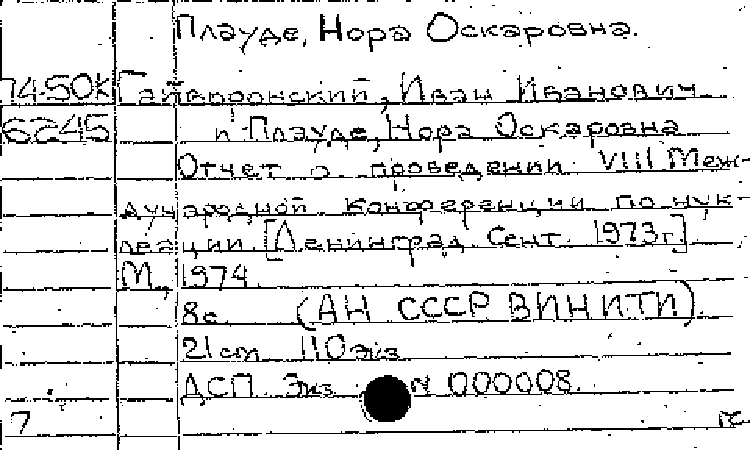 Плауде, Нора Оскаровна.
74-50к Гайворонский, Иван Иванович
6245 и Плауде, Нора Оскаровна
Отчет о проведении VIII Меж-
дународной конференции по нук-
леации. [Ленинград. Сент. 1973г.]
М., 1974
8с. (АН СССР ВИНИТИ).
21 см 110 экз
ДСП Экз. N 000008.
7